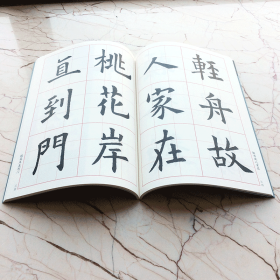 輕舟故
人家在
桃花岸
直到門